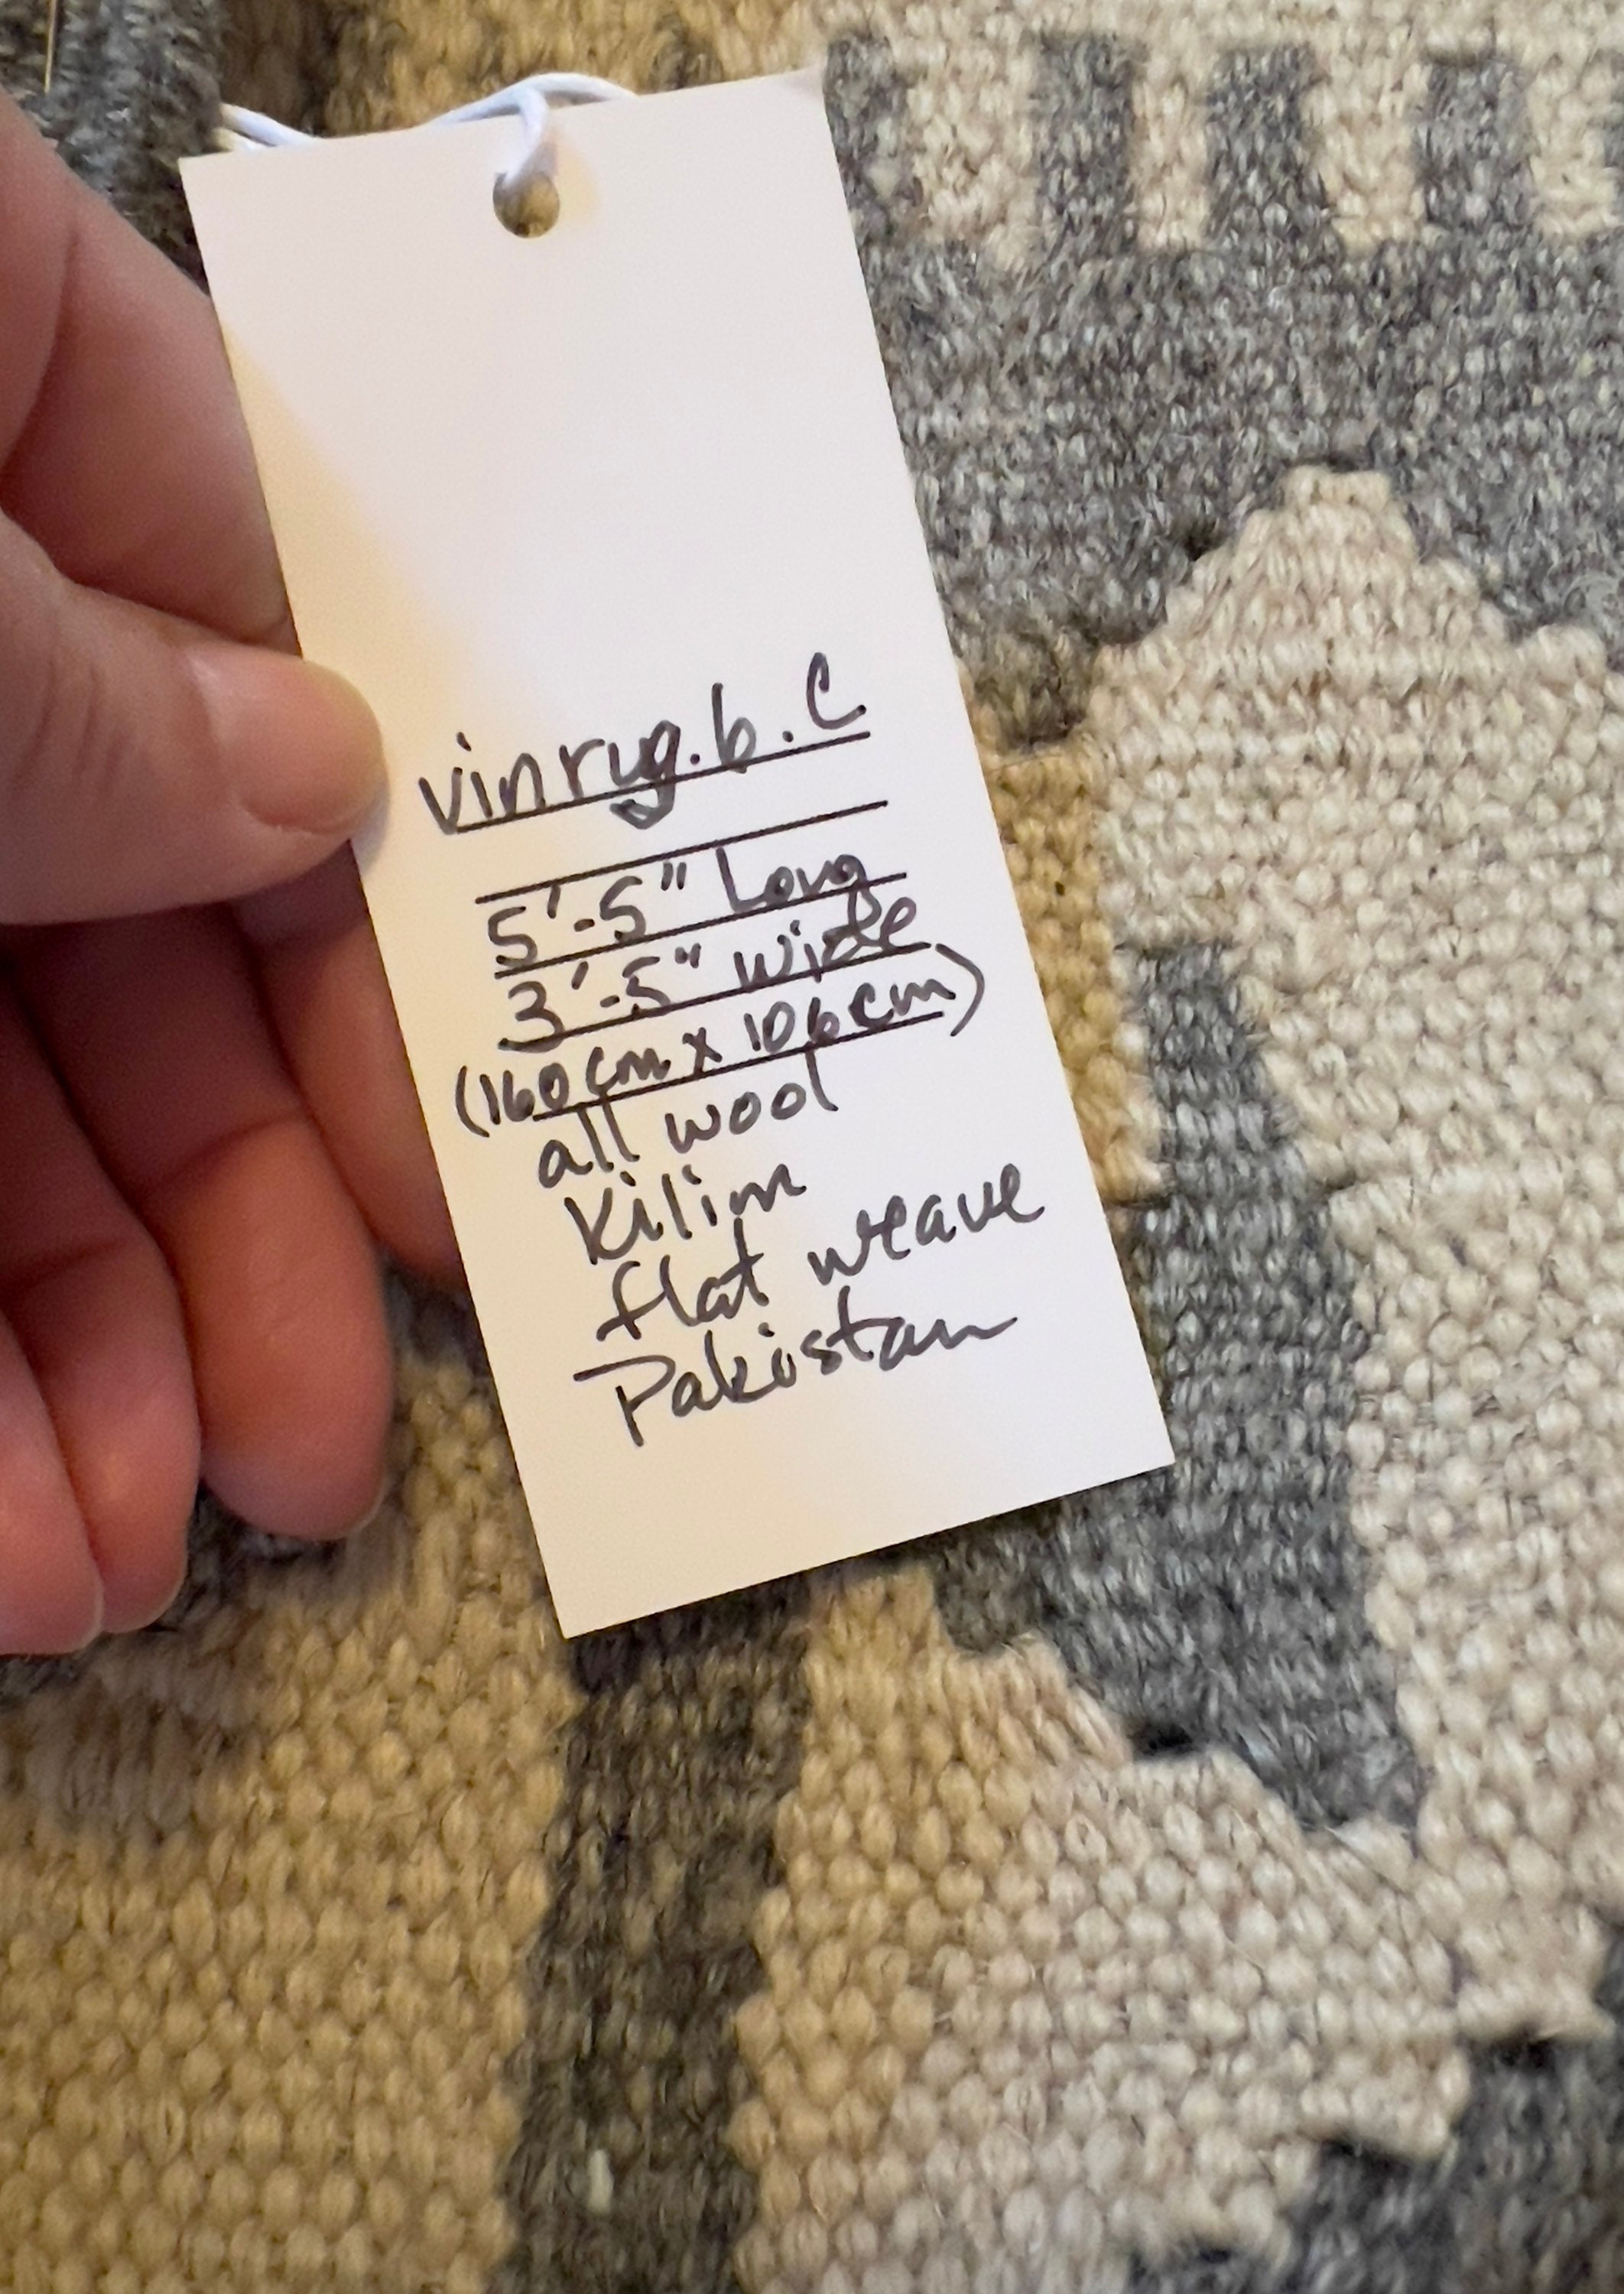 vinrug.b.C
5'-5" Long
3'-5" wide
(160 cm x 106 cm)
all wool
Kilim
flat weave
Pakistan